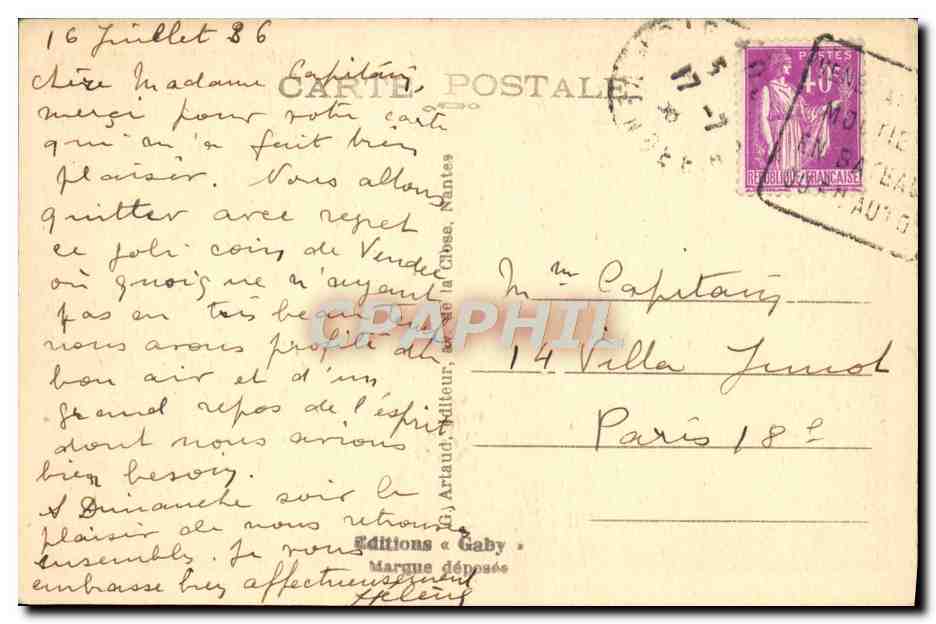 16 Juillet 36
Chère Madame Capitain,
merci pour votre carte
qui m'a fait bien
plaisir. Nous allons
quitter avec regret
ce joli coin de Vendée
où quoique n'ayant
pas eu très beau temps
nous avons profité du
bon air et d'un
grand repos de l'esprit
dont nous avions
bien besoin.
A Dimanche soir le
plaisir de nous retrouver
ensemble. Je vous
embrasse bien affectueusement
Hélène
CARTE POSTALE
G. Artaud, éditeur, de la Close, Nantes
Editions « Gaby »
Marque déposée
CPAPHIL
17 -7
POSTES
40c
REPUBLIQUE FRANCAISE
EN BATEAU
OU EN AUTO
Mme Capitain
14 Villa Junot
Paris 18e